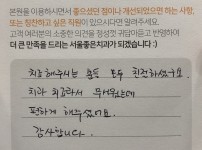 본원을 이용하시면서 좋으셨던 점이나 개선되었으면 하는 사항,
또는 칭찬하고 싶은 직원이 있으시다면 알려주세요.
고객 여러분의 소중한 의견을 정성껏 귀담아듣고 반영하여
더 큰 만족을 드리는 서울좋은치과가 되겠습니다 :)
치료해주시는 분들 모두 친절하셨구요.
치과 치료라서 무서웠는데
편하게 해주셨어요.
감사합니다.